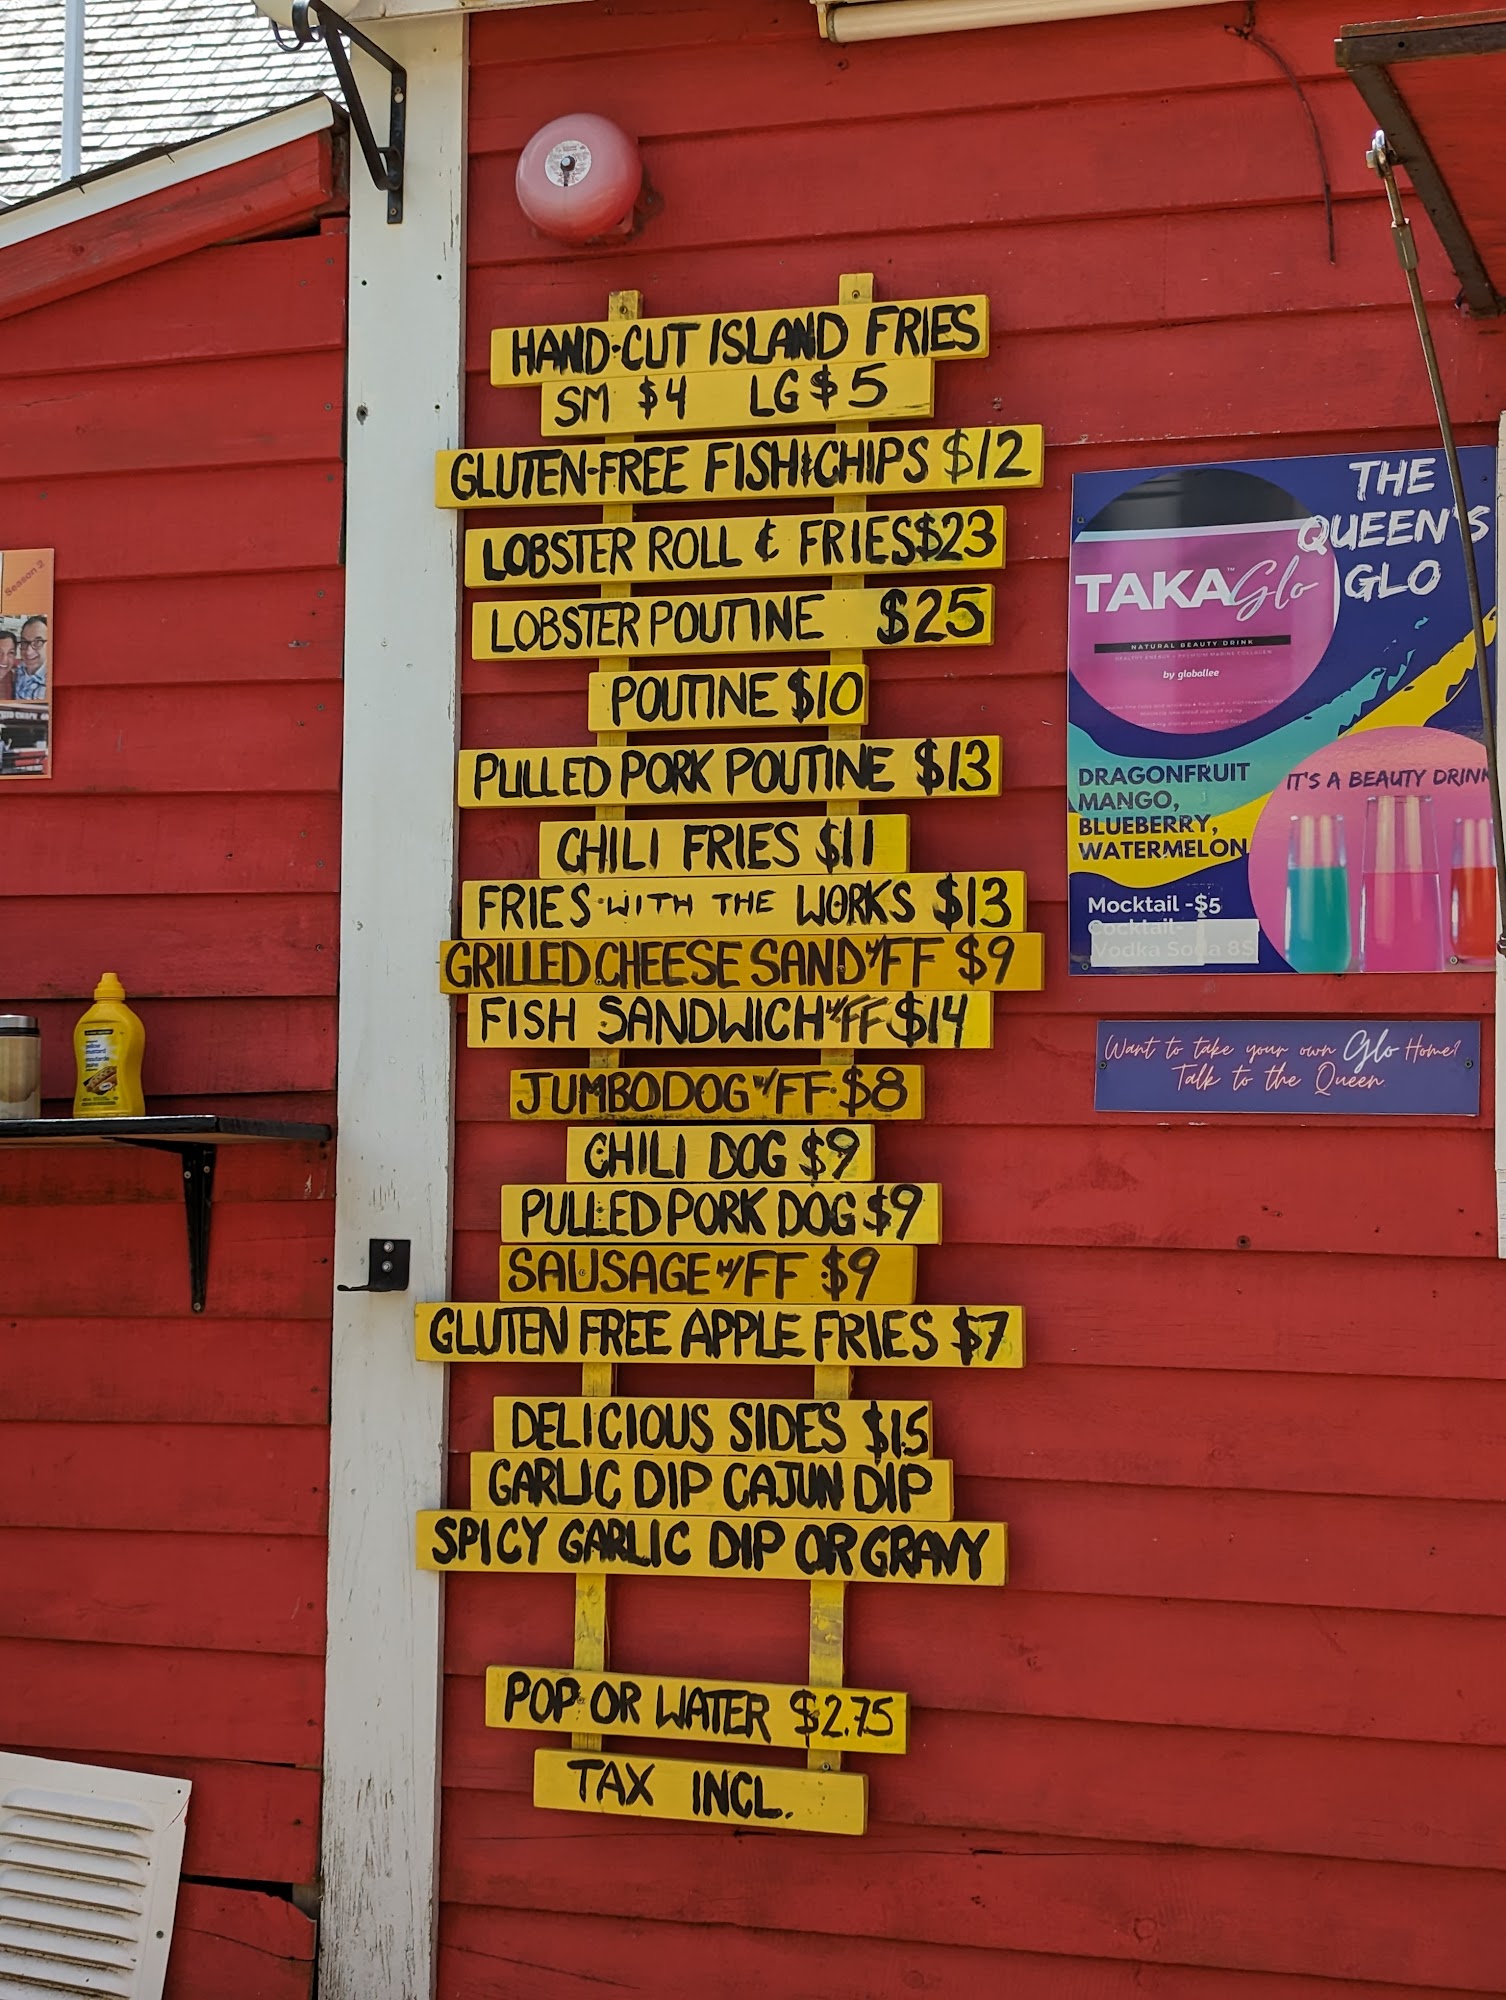 HAND-CUT ISLAND FRIES
SM $4 LG $5
GLUTEN-FREE FISH & CHIPS $12
LOBSTER ROLL & FRIES $23
LOBSTER POUTINE $25
POUTINE $10
PULLED PORK POUTINE $13
CHILI FRIES $11
FRIES WITH THE WORKS $13
GRILLED CHEESE SAND W/FF $9
FISH SANDWICH W/FF $14
JUMBO DOG W/FF $8
CHILI DOG $9
PULLED PORK DOG $9
SAUSAGE W/FF $9
GLUTEN FREE APPLE FRIES $7
DELICIOUS SIDES $1.5
GARLIC DIP CAJUN DIP
SPICY GARLIC DIP OR GRAVY
POP OR WATER $2.75
TAX INCL.
THE
QUEEN'S
GLO
TAKA Glo™
NATURAL BEAUTY DRINK
HEALTHY ENERGY + PREMIUM MARINE COLLAGEN
by globallee
DRAGONFRUIT
MANGO,
BLUEBERRY,
WATERMELON
IT'S A BEAUTY DRINK
Mocktail -$5
Cocktail-
Vodka Soda 8$
Want to take your own Glo Home?
Talk to the Queen
Season 2
yellow
mustard